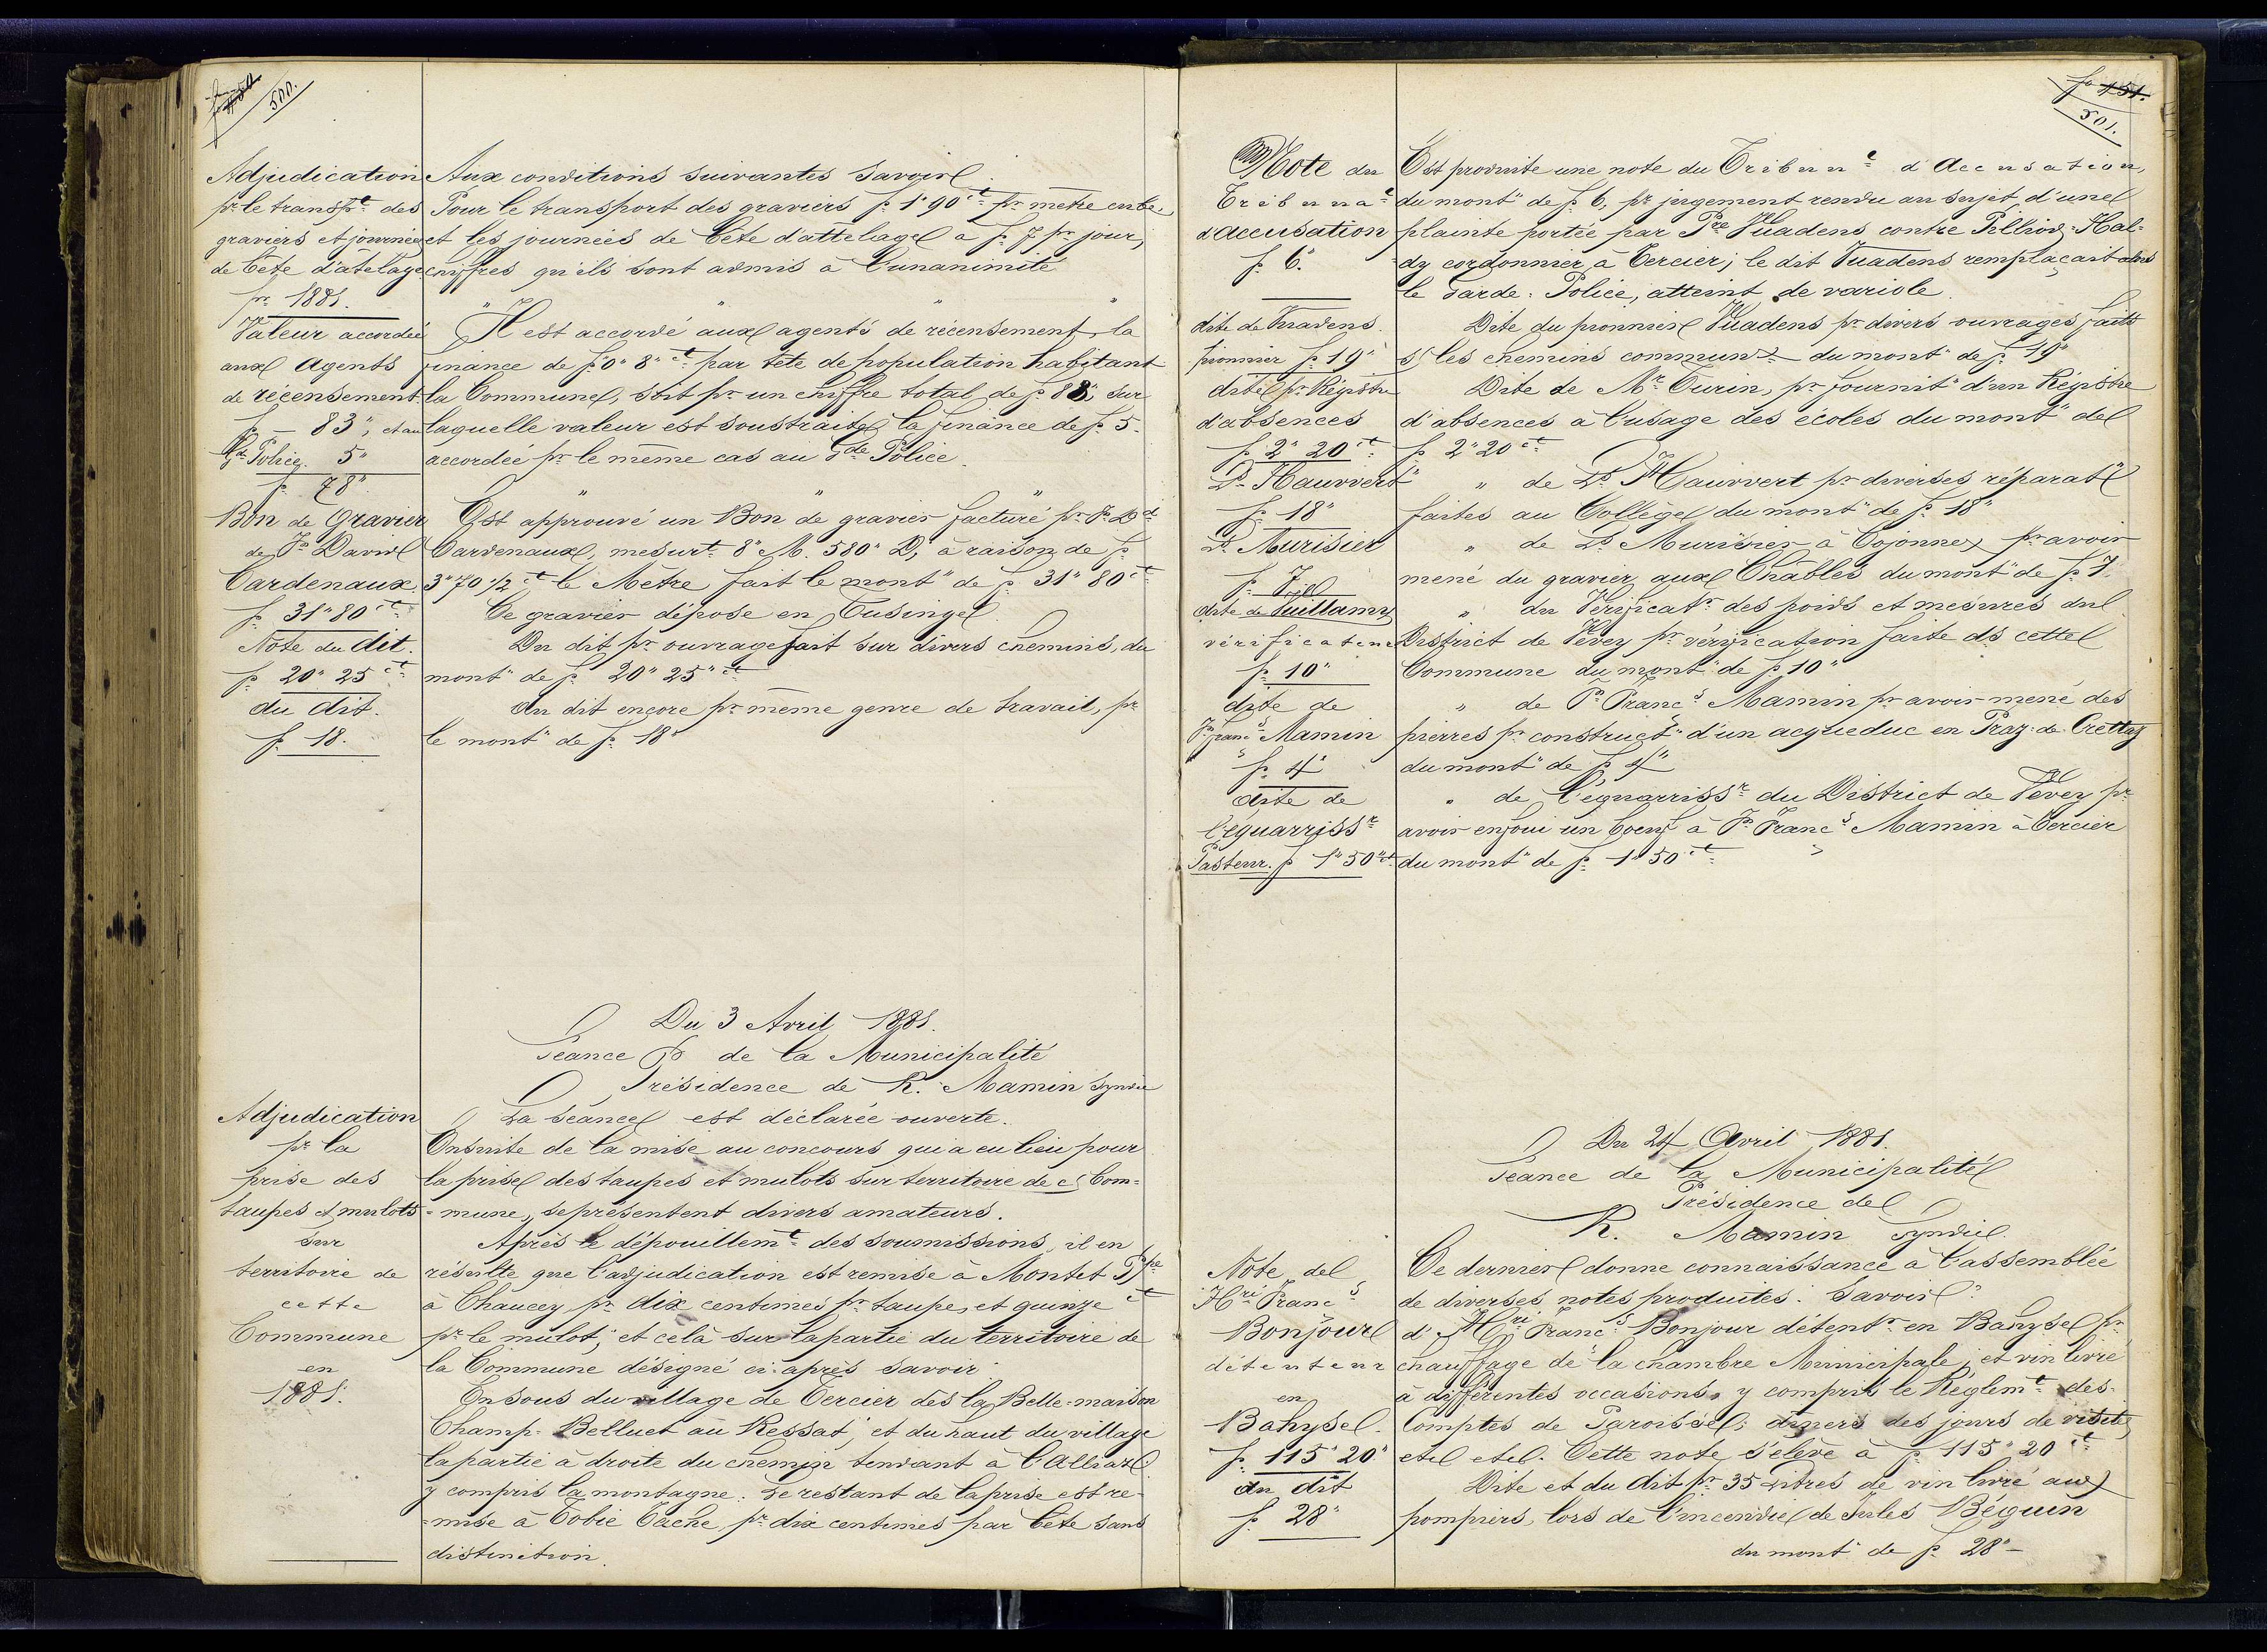 500.
Adjudication
pr le transpt des
graviers et journées
de bête d'atelage
pr 1881.
Aux conditions suivantes savoir
Pour le transport des graviers f. 1"90 ct pr mètre cube
et les journées de bête d'attelage à f. 7 pr jour,
chiffres qu'ils sont admis à l'unanimité
" " " "
Valeur accordée
aux Agents
de récensement
f. — 83", et au
Gd Police. 5"
f. 78"
Il est accordé aux agents de récensement, la
finance de f. 0" 8" ct par tête de population habitant
la Commune, soit pr un chiffre total de f. 83, sur
laquelle valeur est soustraite la finance de f. 5.
accordée pr le même cas au Gde Police.
" " "
Bon de Gravier
de Js David
Cardenaux
f. 31"80 ct
Est approuvé un Bon de gravier facturé pr Js Dd
Cardenaux, mesurt 8" M. 580" D, à raison de f.
3"70 1/2 ct le Mètre fait le mont" de f. 31"80 ct
Ce gravier déposé en Tusinge.
Note du dit.
f. 20" 25 ct
Du dit pr ouvrage fait sur divers chemins, du
mont" de f. 20" 25" ct
du dit.
f. 18.
Du dit encore pr même genre de travail, pr
le mont" de f. 18"
Du 3 Avril 1881.
Séance de la Municipalité
Présidence de R. Mamin Syndic
La séance est déclarée ouverte.
Adjudication
pr la
prise des
taupes et mulots
sur
territoire de
cette
Commune
en
1881.
Ensuite de la mise au concours qui a eu lieu pour
la prise des taupes et mulots sur territoire de Com=
=mune, se présentent divers amateurs.
Après le dépouillemt des soumissions, il en
résulte que l'adjudication est remise à Montet
à Chaucey pr dix centimes pr taupe, et quinze ct
pr le mulot, et celà sur la partie du territoire de
la Commune désigné ci-après savoir
En sous du village de Tercier dès la Belle-maison
Champ-Belluet au Ressat, et du haut du village
la partie à droite du chemin tendant à l'Alliaz
y compris la montagne. Le restant de la prise est re-
=mise à Tobie Tache pr dix centimes par bête sans
distinction.
fo 151.
501.
Note du
Tribunal
d'accusation
f. 6"
Est produite une note du Tribunl d'Accusation,
du mont" de f. 6, pr jugement rendu au sujet d'une
plainte portée par Pre Vuadens contre Pilliod-Hal=
dy cordonnier à Tercier; le dit Vuadens remplaçait alors
le Garde-Police, atteint de variole.
dite de Vuadens
pionnier f. 19"
Dite du pionnier Vuadens pr divers ouvrages faits
s/ les chemins commun du mont" de f. 19"
dite pr Régistre
d'absences
f. 2" 20 ct
Dite de Mr Turin, pr fournit" d'un Régistre
d'absences à l'usage des écoles du mont" de
f. 2"20 ct
Ls Hauvvert
f. 18"
" " de Ls Hauvvert pr diverses réparat"
faites au Collège du mont" de f. 18"
Ls Murisier
f. 7
" de Ls Murisier à Cojonnex pr avoir
mené du gravier aux Châbles du mont" de f. 7.
dite de Vuillamy
vérificateur
f. 10"
" du Vérificatr des poids et mesures du
District de Vevey pr vérification faite ds cette
Commune du mont" de f. 10"
dite de
Js Francs Mamin
f. 4"
" de Js Francs Mamin pr avoir mené des
pierres pr construct" d'un acqueduc en Praz-de-Crettaz
du mont" de f. 4"
dite de
l'équarrissr
Pasteur. f. 1"50 ct
" de l'équarrissr du District de Vevey pr
avoir enfoui un boeuf à Js Francs Mamin à Tercier
du mont" de f. 1"50 ct
Du 24 Avril 1881.
Séance de la Municipalité
Présidence de
R. Mamin Syndic.
Note de
Hri Francs
Bonjour
détenteur
en
Bahyse.
f. 115"20"
Ce dernier donne connaissance à l'assemblée
de diverses notes produites. Savoir:
d'Hri Francs Bonjour détentr en Bahyse pr
chauffage de la chambre Municipale; et vin livré
à différentes occasions, y compris le Réglemt des
Comptes de Paroisse; diners des jours de visite,
etc etc. Cette note s'elève à f. 115"20 ct
du dit
f. 28"
Dite et du dit pr 35 Litres de vin livré aux
pompiers, lors de l'incendie de Jules Béguin
du mont" de f. 28"-